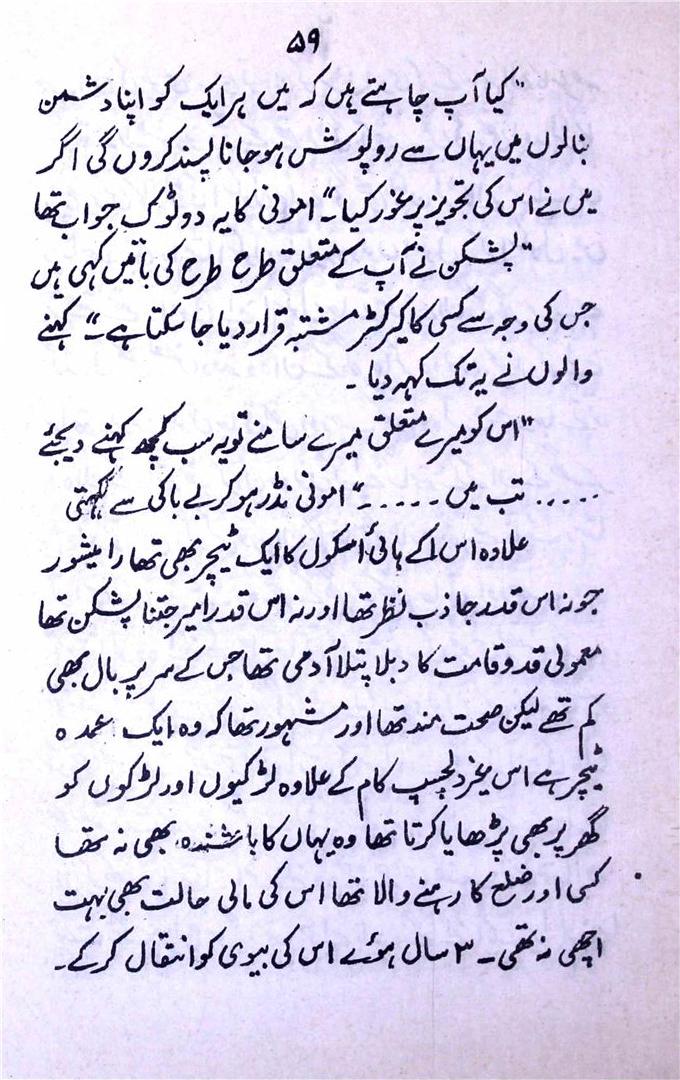 ۵۹
"کیا آپ چاہتے ہیں کہ میں ہر ایک کو اپنا دشمن
بنالوں میں یہاں سے روپوش ہوجانا پسند کروں گی اگر
میں نے اس کی تجویز پر غور کیا۔" امونی کا یہ دو ٹوک جواب تھا
"پشکن نے آپ کے متعلق طرح طرح کی باتیں کہی ہیں
جس کی وجہ سے کسی کا کیرکٹر مشتبہ قرار دیا جا سکتا ہے۔" کہنے
والوں نے یہ تک کہہ دیا ۔
"اس کو میرے متعلق میرے سامنے تو یہ سب کچھ کہنے دیجئے
..... تب میں .....۔" امونی نڈر ہو کر بے باکی سے کہتی
علاوہ اس کے ہائی اسکول کا ایک ٹیچر بھی تھا رامیشور
جو نہ اس قدر جاذب نظر تھا اور نہ اس قدر امیر جتنا پشکن تھا
معمولی قدوقامت کا دبلا پتلا آدمی تھا جس کے سر پر بال بھی
کم تھے لیکن صحت مند تھا اور مشہور تھا کہ وہ ایک عمدہ
ٹیچر ہے اس غیر دلچسپ کام کے علاوہ لڑکیوں اور لڑکوں کو
گھر پر بھی پڑھایا کرتا تھا وہ یہاں کا باشندہ بھی نہ تھا
کسی اور ضلع کا رہنے والا تھا اس کی مالی حالت بھی بہت
اچھی نہ تھی ۔ ۳ سال ہوئے اس کی بیوی کو انتقال کر کے۔